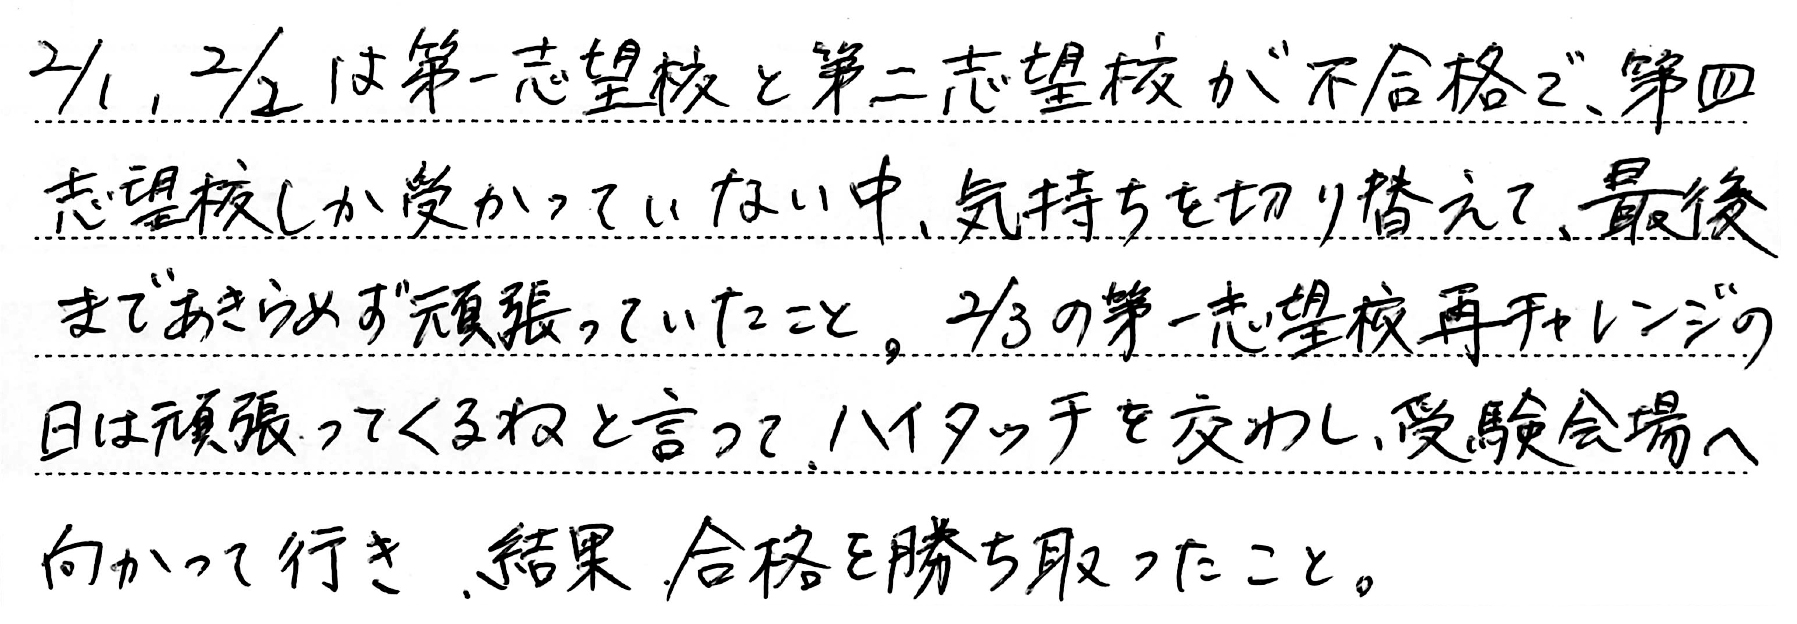 2/1, 2/2 は第一志望校と第二志望校が不合格で、第四
志望校しか受かっていない中、気持ちを切り替えて、最後
まであきらめず頑張っていたこと。2/3の第一志望校再チャレンジの
日は頑張ってくるねと言って、ハイタッチを交わし、受験会場へ
向かって行き、結果、合格を勝ち取ったこと。